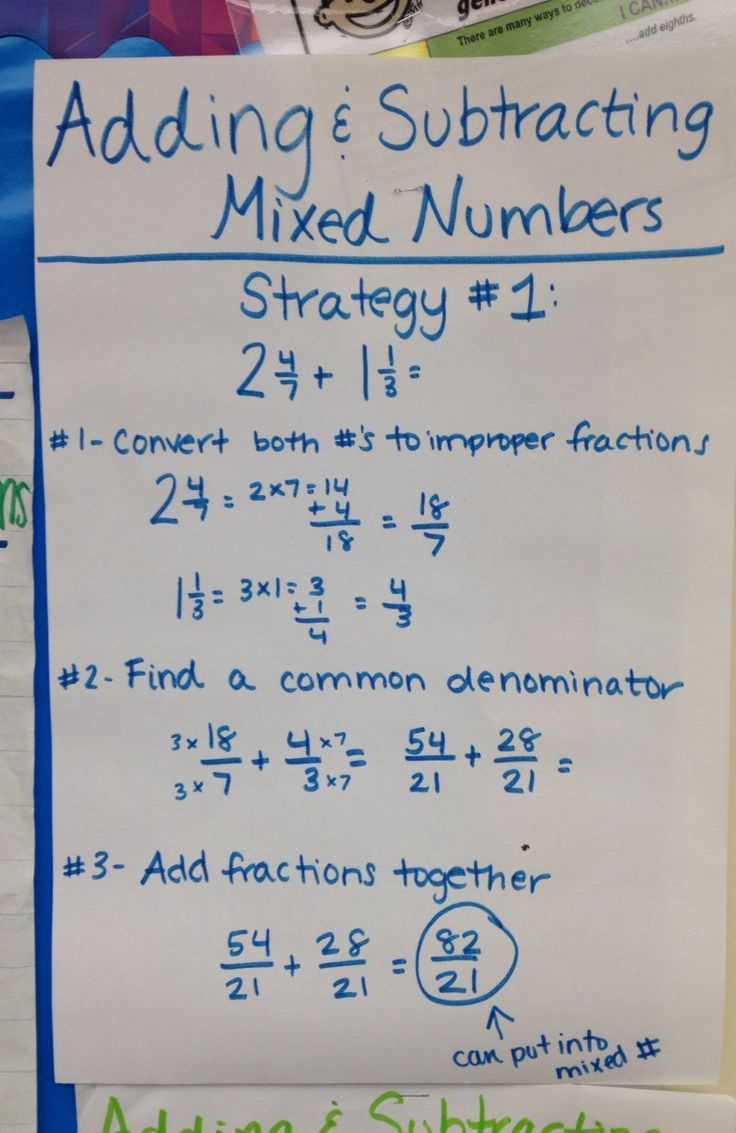 gen
There are many ways to
I CAN...
....add eighths.
Adding & Subtracting
Mixed Numbers
Strategy #1:
2 4/7 + 1 1/3 =
#1- Convert both #'s to improper fractions
2 4/7 = 2x7=14 +4 18 = 18/7
1 1/3 = 3x1= 3 +1 4 = 4/3
#2- Find a common denominator
3x 18/3x 7 + 4 x7/3 x7 = 54/21 + 28/21 =
#3- Add fractions together
54/21 + 28/21 = 82/21
↑
can put into
mixed #
ns
Adding & Subtracting